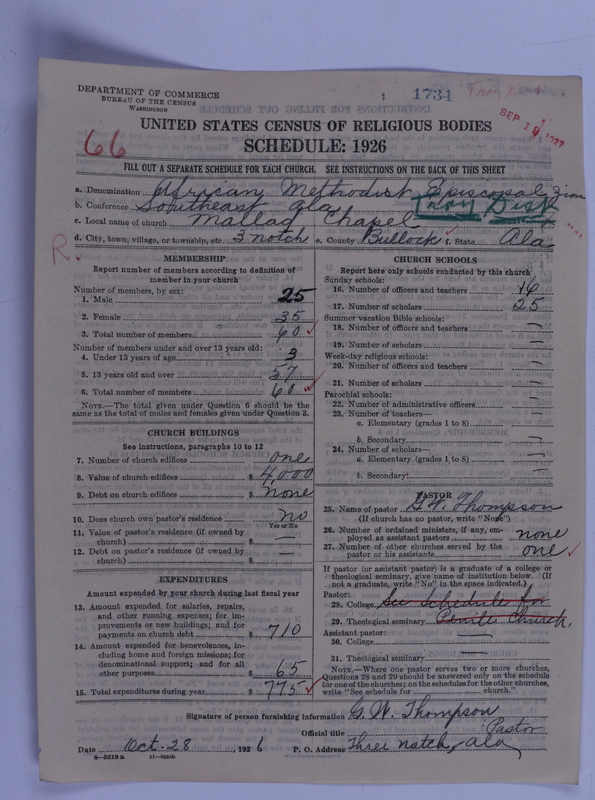 DEPARTMENT OF COMMERCE
BUREAU OF THE CENSUS
WASHINGTON
1734
SEP 19 1927
UNITED STATES CENSUS OF RELIGIOUS BODIES
66
SCHEDULE: 1926
FILL OUT A SEPARATE SCHEDULE FOR EACH CHURCH. SEE INSTRUCTIONS ON THE BACK OF THIS SHEET
a. Denomination African Methodist Episcopal Zion
b. Conference Southeast Ala Troy Dist
c. Local name of church Chapel
d. City, town, village, or township, etc. 3 notch e. County Bullock f. State Ala
R.
MEMBERSHIP
Report number of members according to definition of
member in your church
Number of members, by sex:
1. Male 25
2. Female 35
3. Total number of members 60
Number of members under and over 13 years old:
4. Under 13 years of age 3
5. 13 years old and over 57
6. Total number of members 60
NOTE.—The total given under Question 6 should be the
same as the total of males and females given under Question 3.
CHURCH BUILDINGS
See instructions, paragraphs 10 to 12
7. Number of church edifices one
8. Value of church edifices $ 4,000
9. Debt on church edifices $ none
10. Does church own pastor's residence no
Yes or No
11. Value of pastor's residence (if owned by
church) $ —
12. Debt on pastor's residence (if owned by
church) $ —
EXPENDITURES
Amount expended by your church during last fiscal year
13. Amount expended for salaries, repairs,
and other running expenses; for im-
provements or new buildings; and for
payments on church debt $ 710
14. Amount expended for benevolences, in-
cluding home and foreign missions; for
denominational support; and for all
other purposes $ 65
15. Total expenditures during year $ 775
CHURCH SCHOOLS
Report here only schools conducted by this church
Sunday schools:
16. Number of officers and teachers
17. Number of scholars 25
Summer vacation Bible schools:
18. Number of officers and teachers —
19. Number of scholars —
Week-day religious schools:
20. Number of officers and teachers —
21. Number of scholars —
Parochial schools:
22. Number of administrative officers —
23. Number of teachers—
a. Elementary (grades 1 to 8) —
b. Secondary —
24. Number of scholars—
a. Elementary (grades 1 to 8) —
b. Secondary —
PASTOR
25. Name of pastor G. W. Thompson
(If church has no pastor, write "None")
26. Number of ordained ministers, if any, em-
ployed as assistant pastors none
27. Number of other churches served by the
pastor or his assistants one
If pastor (or assistant pastor) is a graduate of a college or
theological seminary, give name of institution below. (If
not a graduate, write "No" in the space indicated.)
Pastor:
28. College See Schedule for
29. Theological seminary Church.
Assistant pastor:
30. College —
31. Theological seminary —
NOTE.—Where one pastor serves two or more churches,
Questions 28 and 29 should be answered only on the schedule
for one of the churches; on the schedules for the other churches,
write "See schedule for church."
Signature of person furnishing information G. W. Thompson
Official title Pastor
Date Oct. 28, 1926 P. O. Address Three notch, Ala